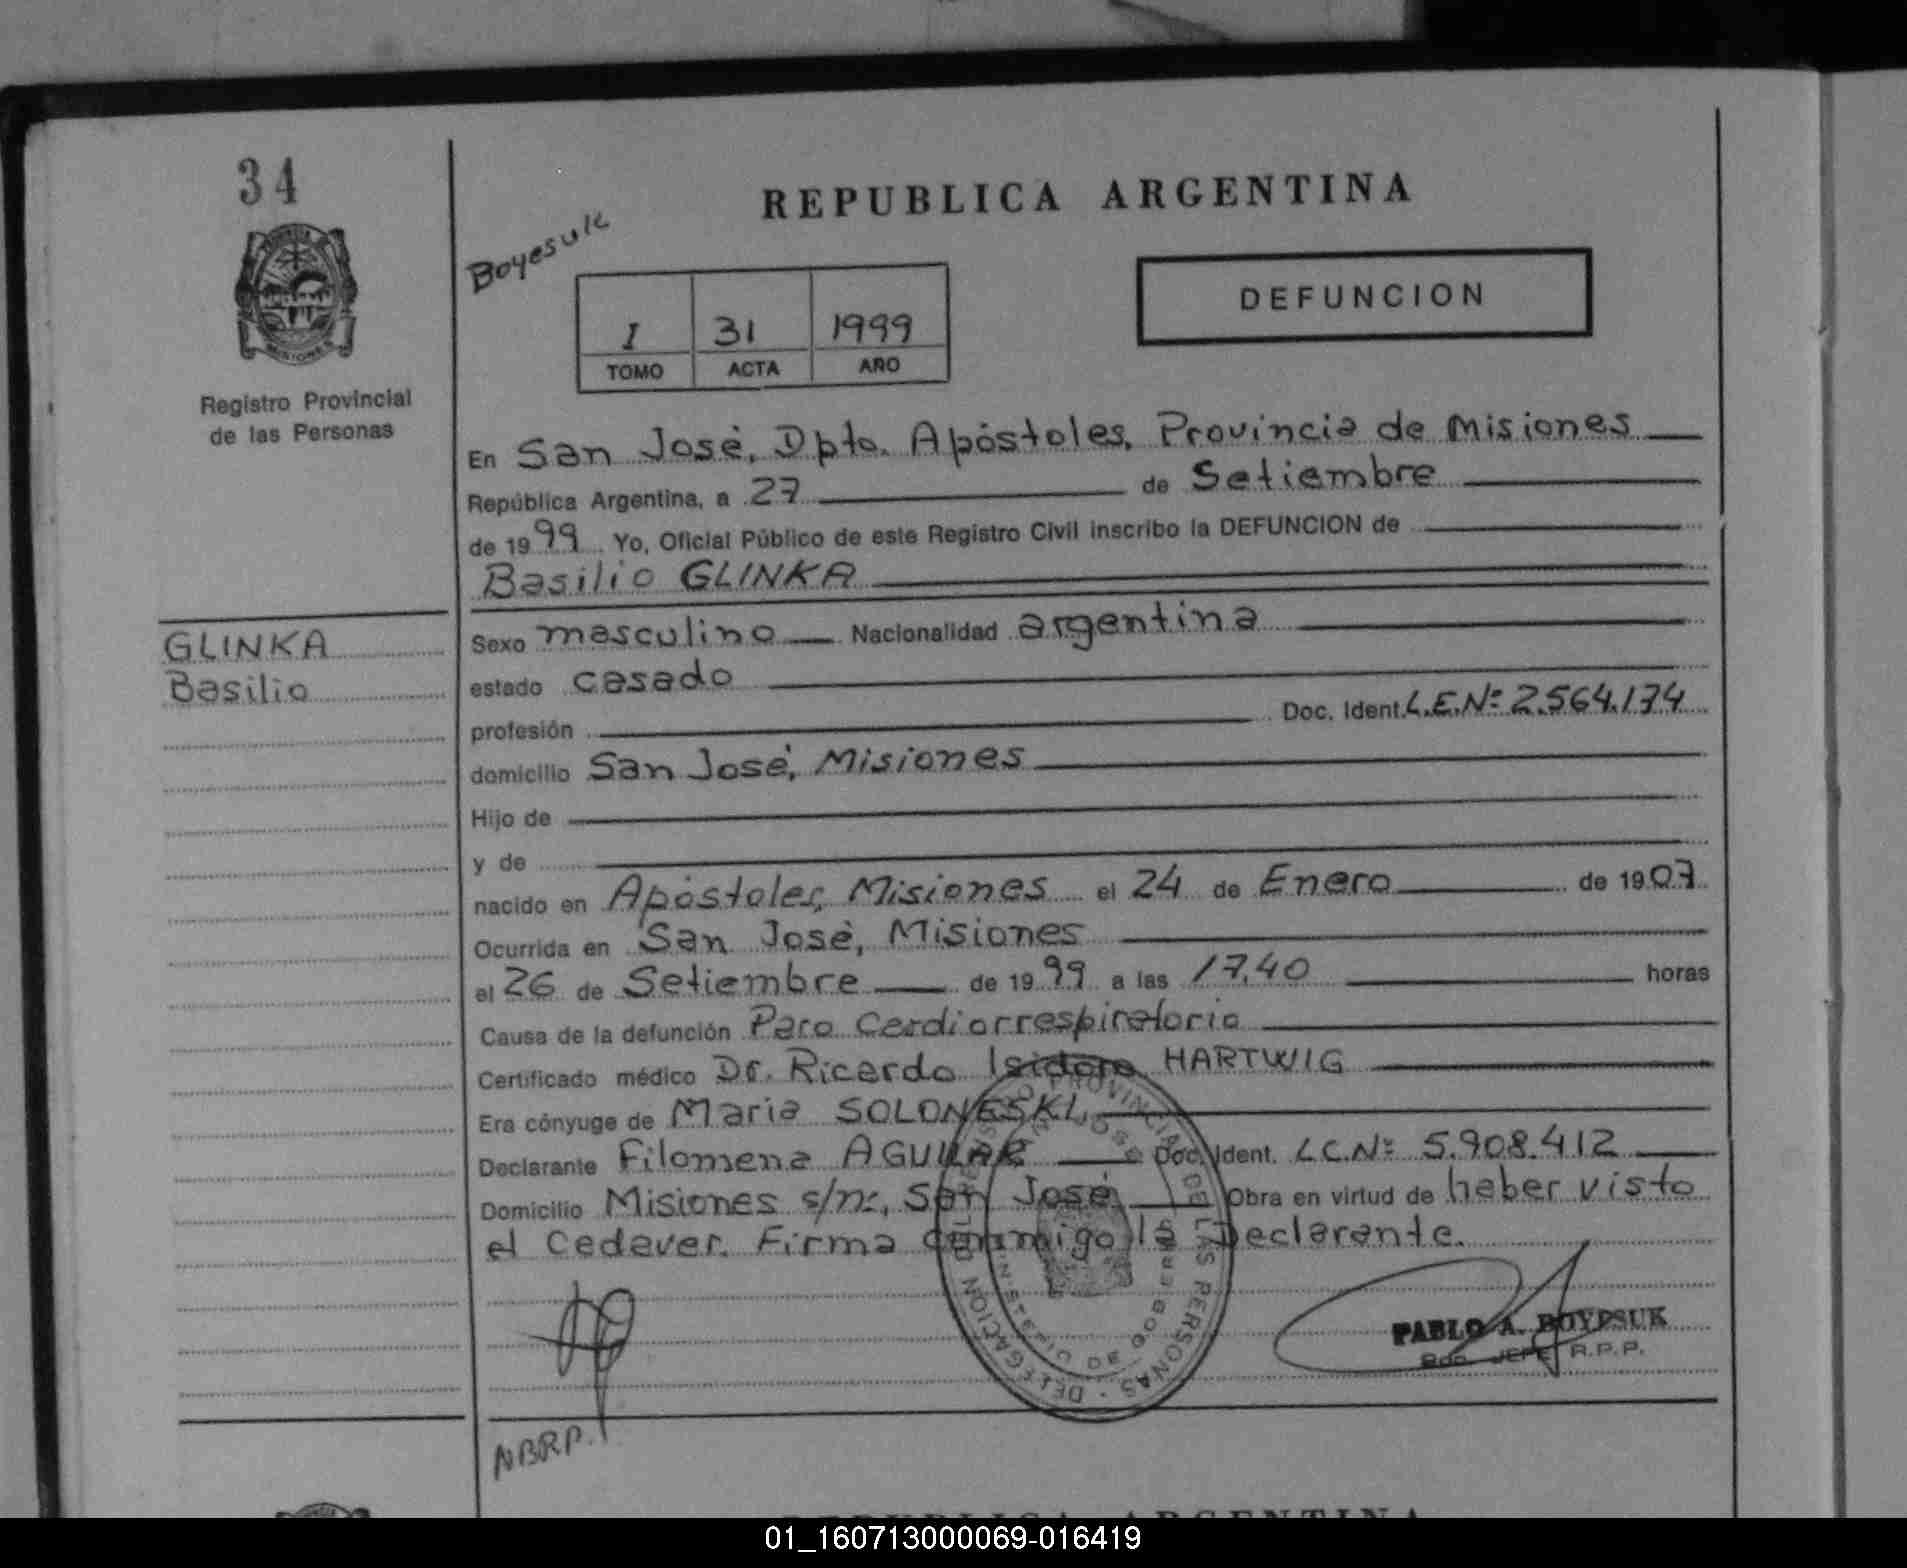 34
REPUBLICA ARGENTINA
Boyesuk
DEFUNCION
I 31 1999
TOMO ACTA AÑO
MISIONES
Registro Provincial
de las Personas
En San José, Dpto. Apóstoles, Provincia de Misiones
República Argentina, a 27 de Setiembre
de 1999 Yo, Oficial Público de este Registro Civil inscribo la DEFUNCION de
Basilio GLINKA
GLINKA
Basilio
Sexo masculino Nacionalidad argentina
estado casado
profesión Doc. Ident. L.E.Nº 2.564.174
domicilio San José, Misiones
Hijo de
y de
nacido en Apóstoles, Misiones el 24 de Enero de 1907
Ocurrida en San José, Misiones
el 26 de Setiembre de 1999 a las 17,40 horas
Causa de la defunción Paro Cardiorrespiratorio
Certificado médico Dr. Ricardo Isidoro HARTWIG
Era cónyuge de Maria SOLONESKI
Declarante Filomena AGUILAR Doc. Ident. L.C.Nº 5.908.412
Domicilio Misiones s/nº, San José Obra en virtud de haber visto
el Cadaver. Firma conmigo la Declarante.
DELEGACION PROVINCIAL DE LAS PERSONAS
SAN JOSE
MINISTERIO DE GOBIERNO
PABLO A. BOYESUK
JEFE R.P.P.
NBRP.
REPUBLICA ARGENTINA
01_160713000069-016419